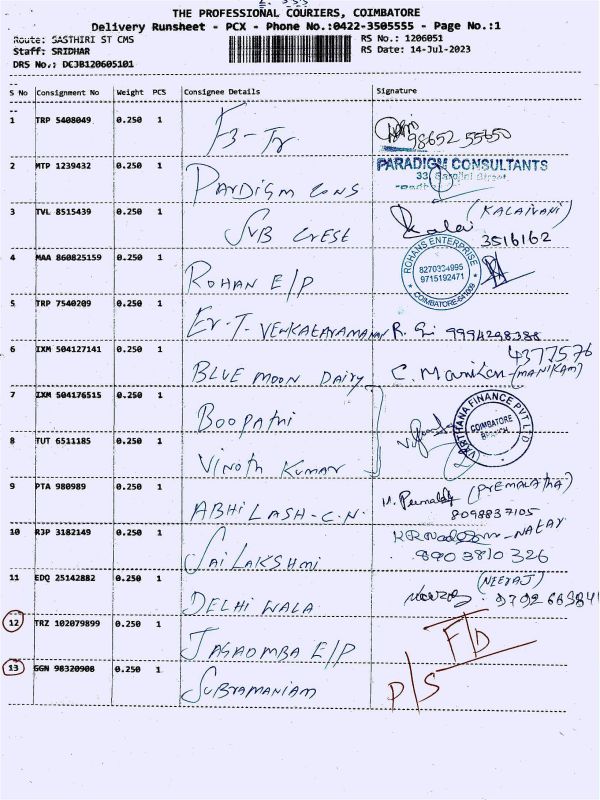 THE PROFESSIONAL COURIERS, COIMBATORE
Delivery Runsheet - PCX - Phone No.:0422-3505555 - Page No.:1
Route: SASTHIRI ST CMS RS No.: 1206051
Staff: SRIDHAR RS Date: 14-Jul-2023
DRS No.: DCJB120605101
S No Consignment No Weight PCS Consignee Details Signature
1 TRP 5408049 0.250 1 F3-Tr 98652 55650
2 MTP 1239432 0.250 1 PARDIGM CONS PARADIGM CONSULTANTS
33, Sarojini Street
3 TVL 8515439 0.250 1 SVB CREST Kalai (KALAIVANI)
3516162
4 MAA 860825159 0.250 1 ROHAN E/P ROHANS ENTERPRISE
8270334995
9715192471
COIMBATORE-641009
5 TRP 7540209 0.250 1 Er. T. VENKATARAMANAN 9994298388
6 IXM 504127141 0.250 1 BLUE MOON Dairy C. Manikan (MANIKAM)
4377576
7 IXM 504176515 0.250 1 Boopathi VARTHANA FINANCE PVT LTD
COIMBATORE
BRANCH
8 TUT 6511185 0.250 1 Vinoth Kumar
9 PTA 980989 0.250 1 ABHILASH-C.N. (PREMALATHA)
8098837105
10 RJP 3182149 0.250 1 SAILAKSHMI
8903810326
11 EDQ 25142882 0.250 1 DELHI WALA (NEERAJ)
12 TRZ 102079899 0.250 1 JAGADMBA E/P F/D
13 GGN 98320908 0.250 1 SUBRAMANIAM P/S